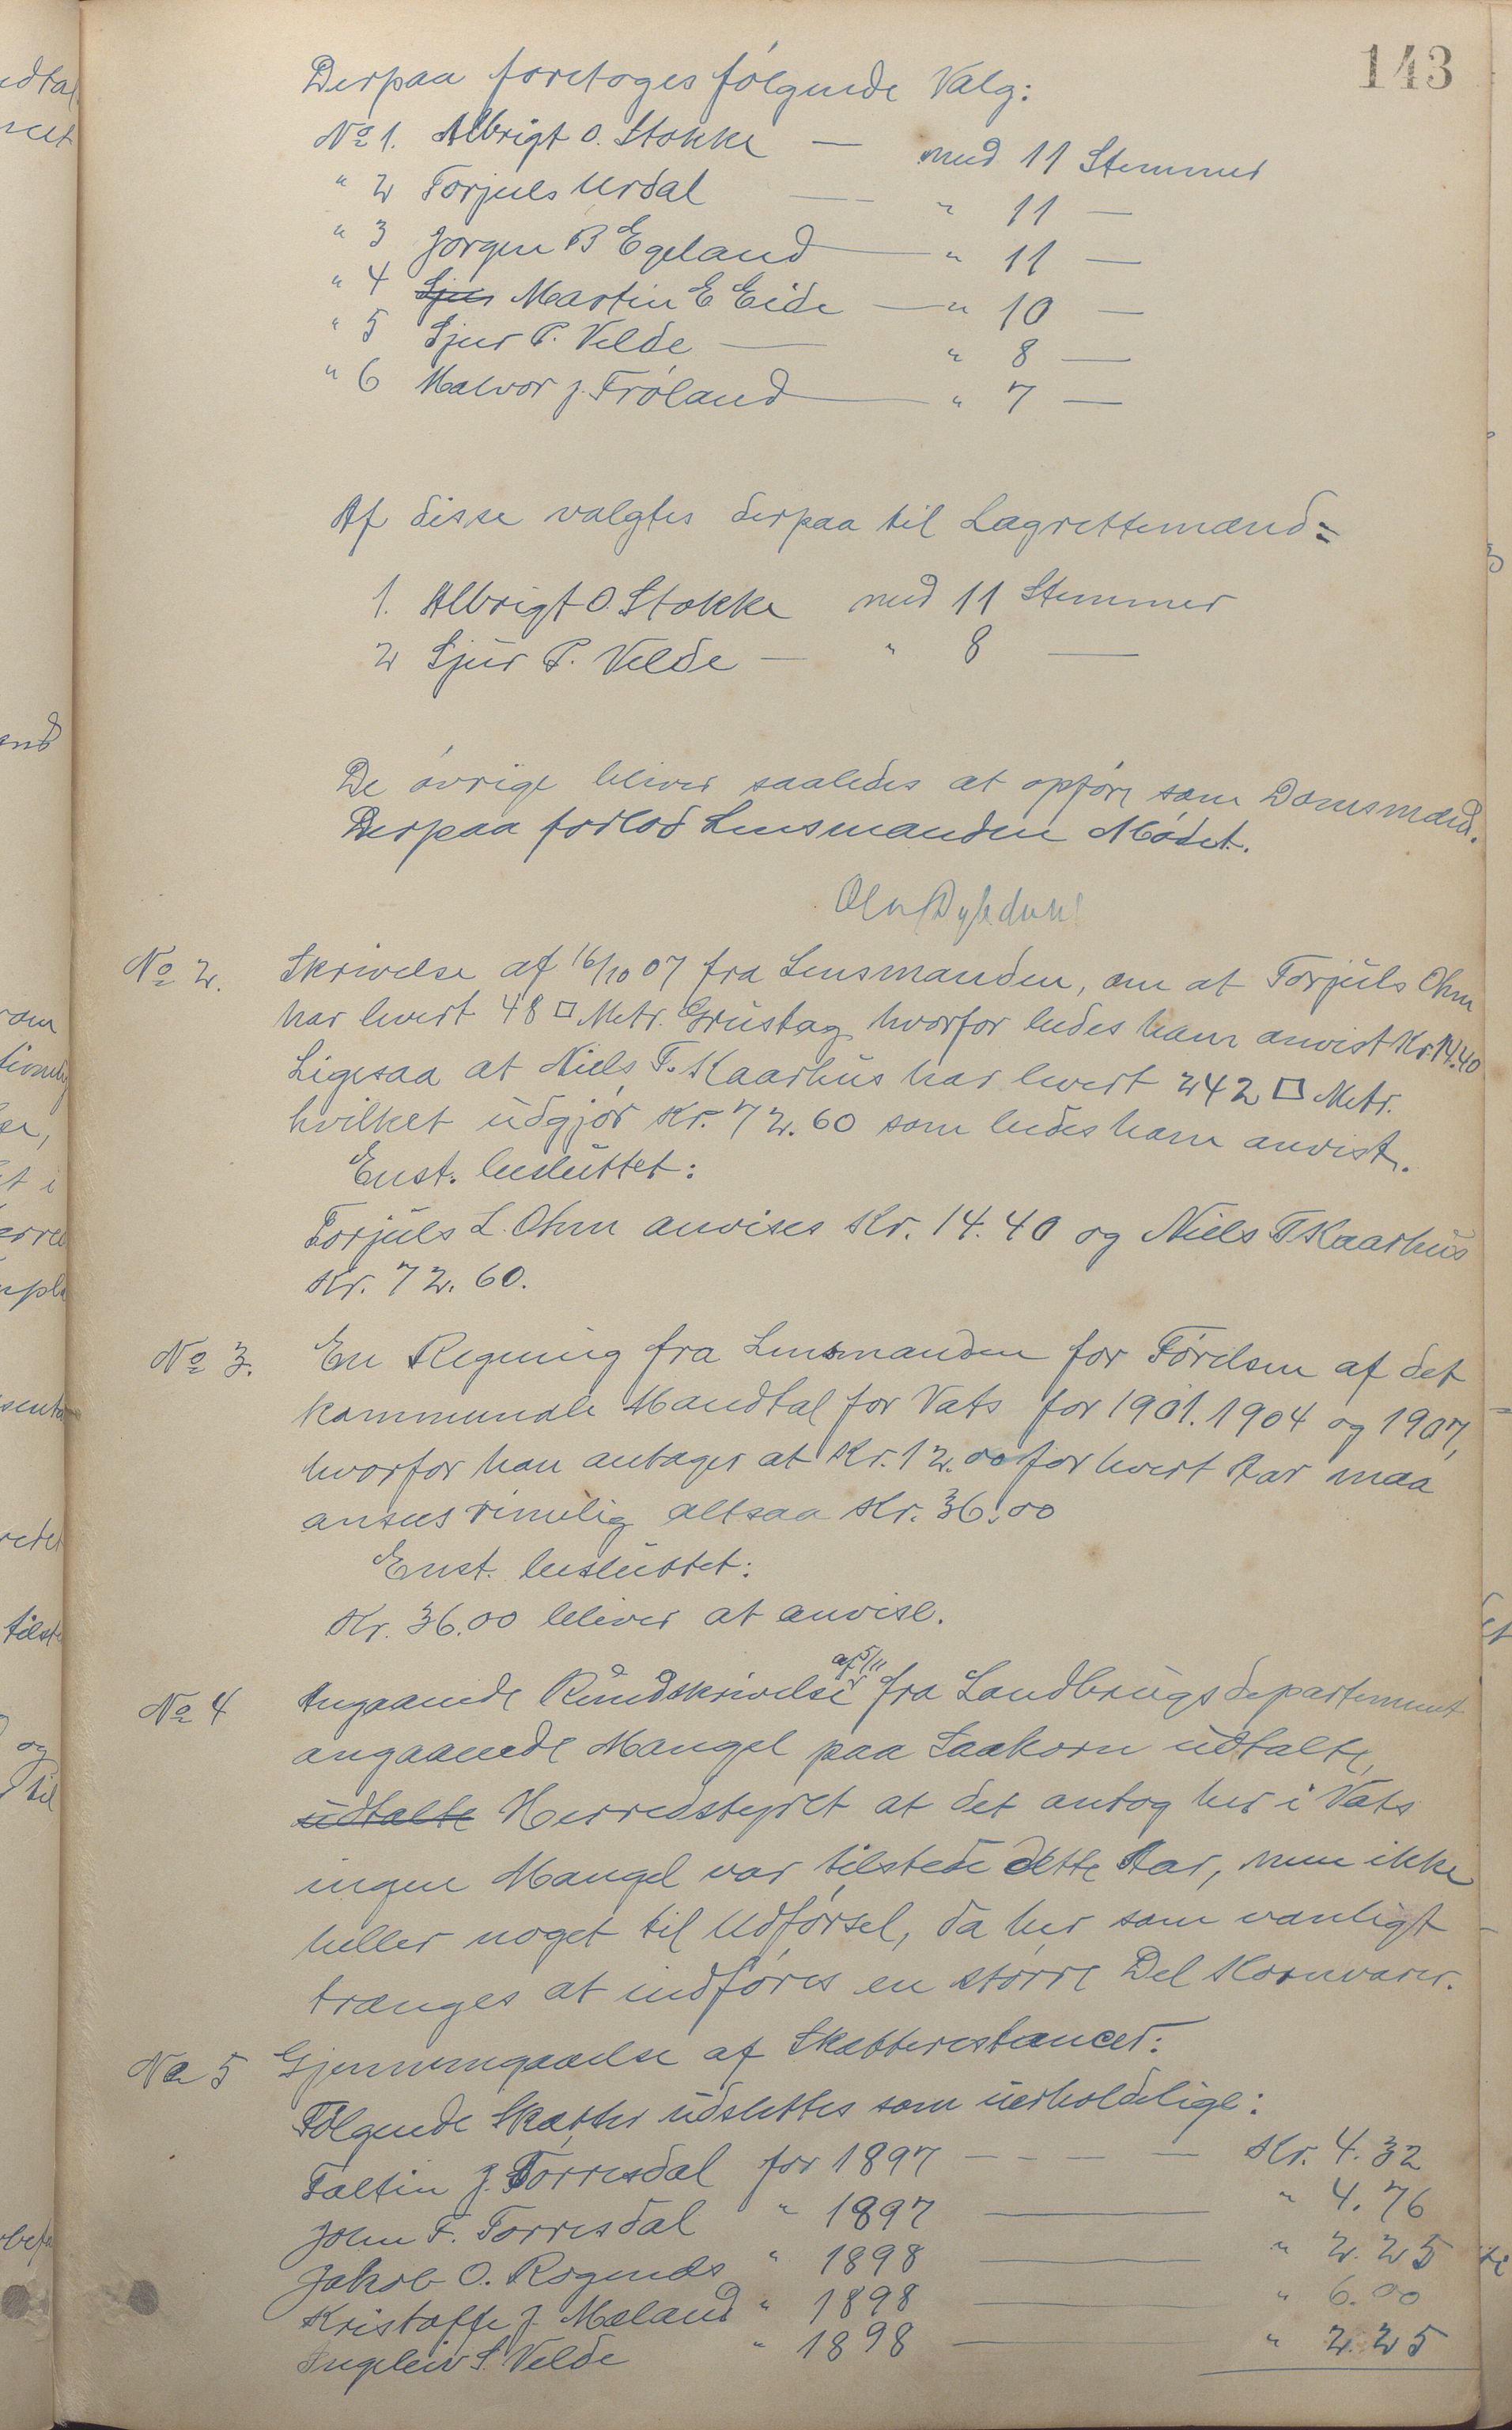 143
Derpaa foretoges følgende Valg:
No 1. Albrigt O. Stokke — med 11 Stemmer
" 2 Torjuls Urdal — " 11 —
" 3 Jørgen B Egeland — " 11 —
" 4 Sjur Martin E Eide — " 10 —
" 5 Sjur P. Velde — " 8 —
" 6 Halvor J. Frøland — " 7 —
Af disse valgtes derpaa til Lagrettemænd:
1. Albrigt O. Stokke med 11 Stemmer
2 Sjur P. Velde — " 8 —
De øvrige bliver saaledes at opføre som Domsmænd.
Derpaa forlod Lensmanden Mødet.
No 2. Skrivelse af 16/10 07 fra Lensmanden, om at Torjuls Ohm
har levert 48 □ Metr. Grustag hvorfor bedes ham anvist Kr. 14.40
Ligesaa at Niels T. Kaarhus har levert 242 □ Metr.
hvilket udgjør Kr. 72.60 som bedes ham anvist.
Enst. besluttet:
Torjuls L. Ohm anvises Kr. 14.40 og Niels T Kaarhus
Kr. 72.60.
No 3. En Regning fra Lensmanden for Førelsen af det
kommunale Mandtal for Vats for 1901. 1904 og 1907,
hvorfor han antager at Kr. 12.00 for hvert Aar maa
ansees rimelig altsaa Kr. 36.00
Enst. besluttet:
Kr. 36.00 bliver at anvise.
No 4 Angaaende Rundskrivelse af 5/11 fra Landbrugsdepartement
angaaende Mangel paa Saakorn udtalte,
udtalte Herredstyret at det antog her i Vats
ingen Mangel var tilstede dette Aar, men ikke
heller noget til Udførsel, da her som vanligt
trænges at indføres en større Del Kornvarer.
No 5 Gjennemgaaelse af Skatterestancer:
Følgende Skatter udslettes som uerholdelige:
Taltin J. Tørresdal for 1897 — — — — Kr. 4.32
John F. Torresdal " 1897 — " 4.76
Jakob O. Rogends " 1898 — " 2.25
Kristoffe J. Mæland " 1898 — " 6.00
Ingeleiv S. Velde " 1898 — " 2.25